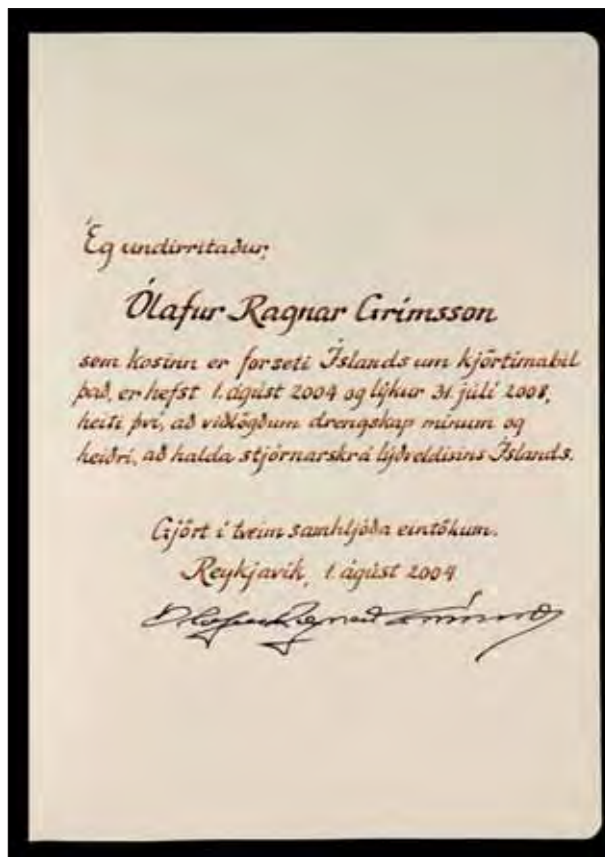 Ég undirritaður,
Ólafur Ragnar Grímsson
sem kosinn er forseti Íslands um kjörtímabil
það, er hefst 1. ágúst 2004 og lýkur 31. júlí 2008,
heiti því, að viðlögðum drengskap mínum og
heiðri, að halda stjórnarskrá lýðveldisins Íslands.
Gjört í tveim samhljóða eintökum.
Reykjavík, 1. ágúst 2004
Ólafur Ragnar Grímsson